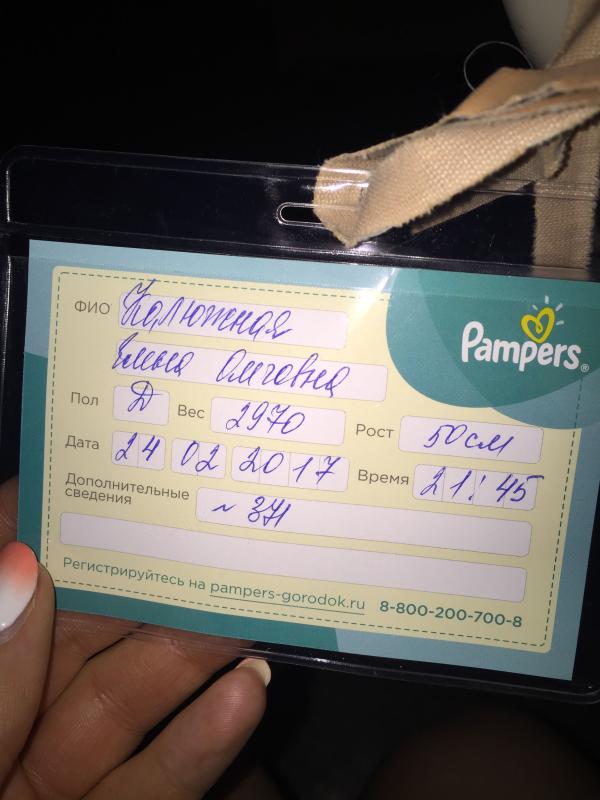 Pampers®
ФИО Калюжная
Елена Олеговна
Пол Д Вес 2970 Рост 50см
Дата 24 02 2017 Время 21:45
Дополнительные сведения ~ 371
Регистрируйтесь на pampers-gorodok.ru 8-800-200-700-8